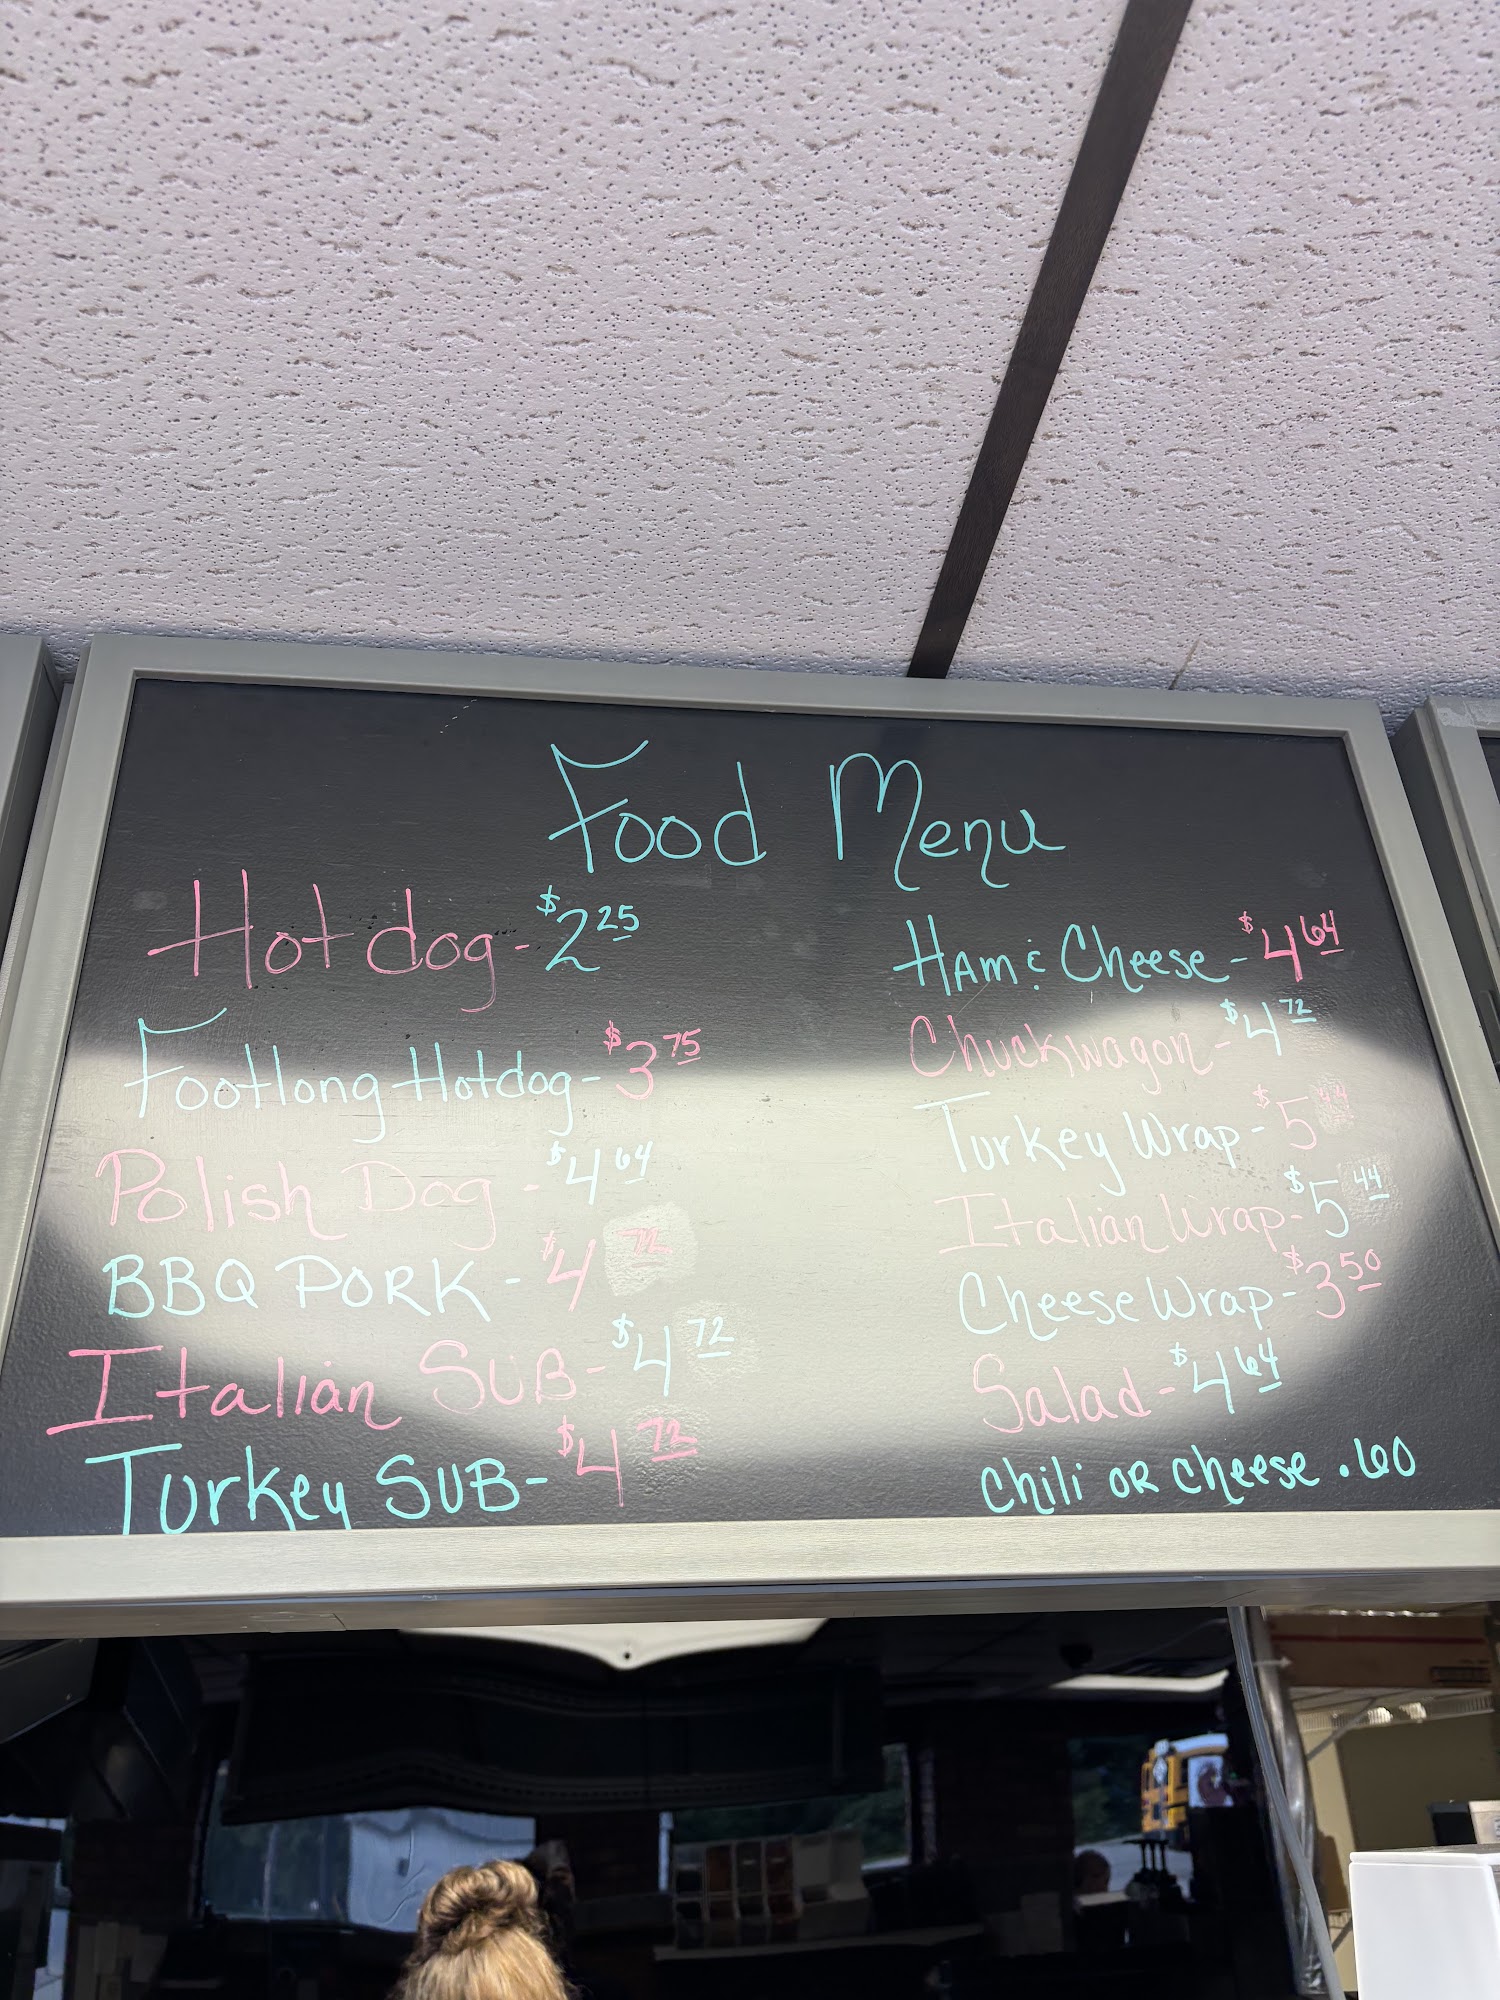 Food Menu
Hotdog - $2.25
Footlong Hotdog - $3.75
Polish Dog - $4.64
BBQ PORK - $4.72
Italian SUB - $4.72
Turkey SUB - $4.72
HAM & Cheese - $4.64
Chuckwagon - $4.72
Turkey Wrap - $5.44
Italian Wrap - $5.44
Cheese Wrap - $3.50
Salad - $4.64
Chili OR Cheese .60